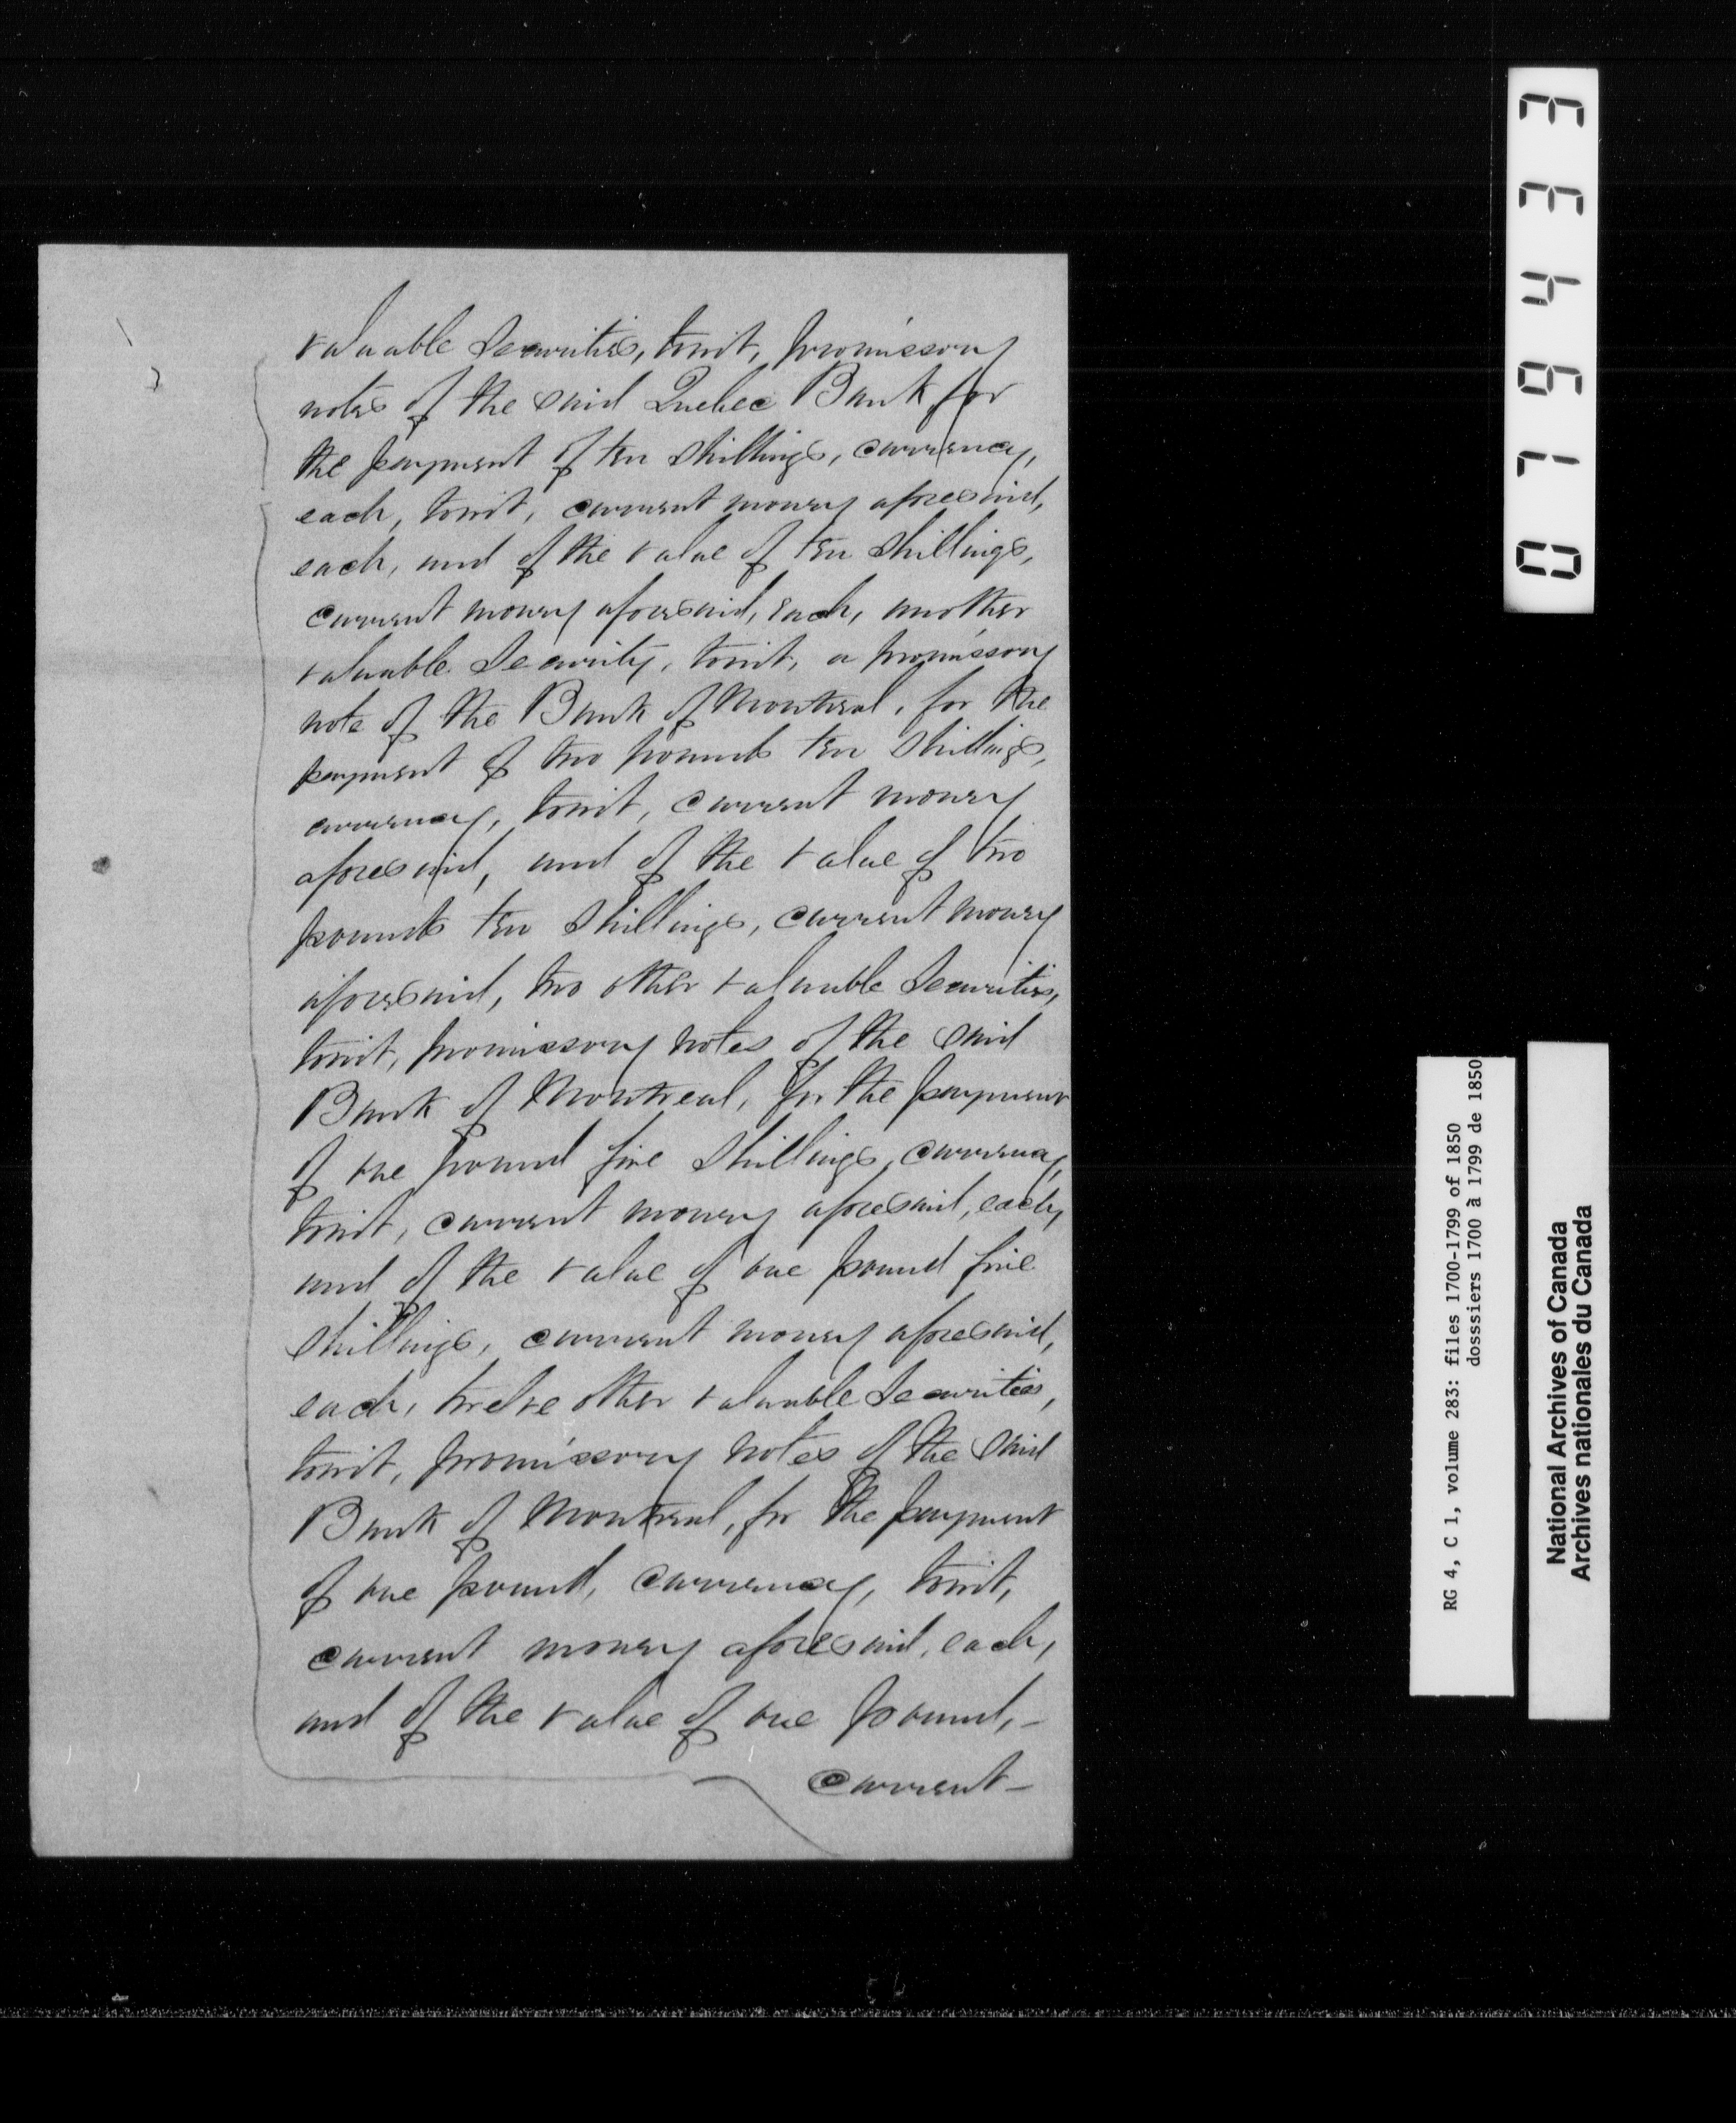 valuable Securities, towit, promissory
notes of the said Quebec Bank for
the payment of ten Shillings, currency,
each, towit, current money aforesaid,
each, and of the value of ten Shillings,
current money aforesaid, each, another
valuable Security, towit, a promissory
note of the Bank of Montreal, for the
payment of two pounds ten Shillings,
currency, towit, current money
aforesaid, and of the value of two
pounds ten Shillings, current money
aforesaid, two other valuable Securities,
towit, promissory notes of the said
Bank of Montreal, for the payment
of one pound five Shillings, currency,
towit, current money aforesaid, each,
and of the value of one pound five
Shillings, current money aforesaid,
each, twelve other valuable Securities,
towit, promissory notes of the said
Bank of Montreal, for the payment
of one pound, currency, towit,
current money aforesaid, each,
and of the value of one pound, -
current -
079433
RG 4, C 1, volume 283: files 1700-1799 of 1850
dosssiers 1700 à 1799 de 1850
National Archives of Canada
Archives nationales du Canada